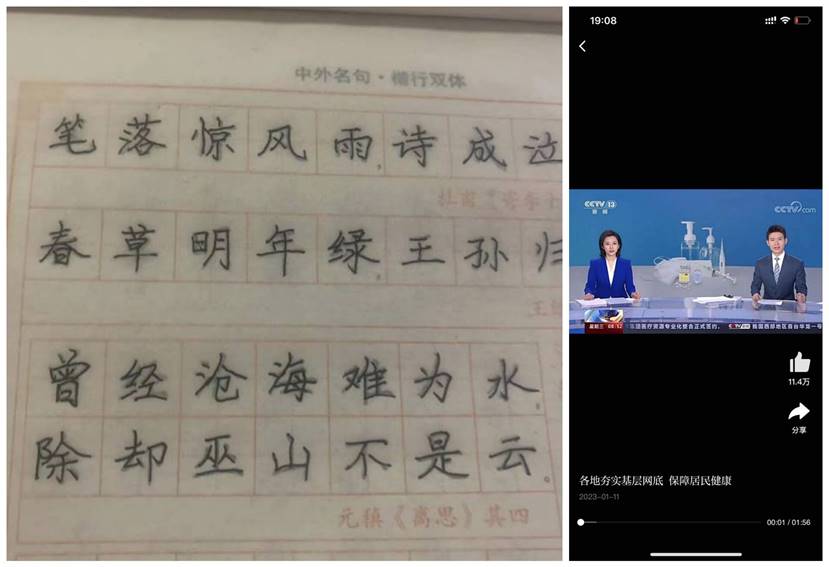 中外名句·楷行双体
笔落惊风雨,诗成泣
春草明年绿,王孙归
曾经沧海难为水,
除却巫山不是云。
元稹《离思》其四
19:08
CCTV 13
新闻
CCTV.com
星期三 08:12
医疗资源专业化整合正式签约。 CCTV 13 我国西部地区首台华龙一号
11.4万
分享
各地夯实基层网底 保障居民健康
2023-01-11
00:01 / 01:56